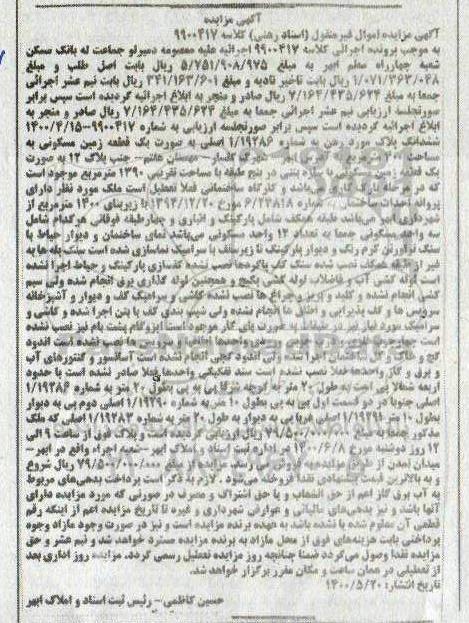 آگهی مزایده
آگهی مزایده اموال غیرمنقول (اسناد رهنی) کلاسه ۹۹۰۰۴۱۷
به موجب پرونده اجرائی کلاسه ۹۹۰۰۴۱۷ اجرائیه علیه معصومه دمیرلو جماعت له بانک مسکن
شعبه چهارراه معلم ابهر به مبلغ ۵/۷۵۱/۹۰۸/۹۷۵ ریال بابت اصل طلب و مبلغ
۱/۰۷۱/۳۶۳/۰۴۸ ریال بابت تاخیر تادیه و مبلغ ۳۴۱/۱۶۳/۶۰۱ ریال بابت نیم عشر اجرائی
جمعا به مبلغ ۷/۱۶۴/۴۳۵/۶۲۴ ریال صادر و منجر به ابلاغ اجرائیه گردیده است سپس برابر
صورتجلسه ارزیابی نیم عشر اجرائی جمعا به مبلغ ۷/۱۶۴/۴۳۵/۶۲۴ ریال صادر و منجر به
ابلاغ اجرائیه گردیده است سپس برابر صورتجلسه ارزیابی به شماره ۹۹۰۰۴۱۷-۱۴۰۰/۴/۱۵
ششدانگ پلاک مورد رهن به شماره ۱/۱۹۲۸۶ اصلی به صورت یک قطعه زمین مسکونی به
مساحت شهرک گلسار-مهستان هاتم-جنب پلاک ۱۲ به صورت
یک قطعه زمین مسکونی با سازه بتنی در پنج طبقه با مساحت تقریبی ۱۳۹۰ مترمربع موجود است
که در مرحله نازک کاری می باشد و کارگاه ساختمانی فعلا تعطیل است ملک مورد نظر دارای
پروانه احداث ساختمان به شماره ۶/۲۴۸۱۸ مورخ ۱۳۹۴/۱۲/۲۰ با زیربنای ۱۴۰۰ مترمربع از
شهرداری ابهر می باشد طبقه همکف شامل پارکینگ و انباری و چهار طبقه فوقانی هرکدام شامل
سه واحد مسکونی جمعا به تعداد ۱۲ واحد مسکونی می باشد نمای ساختمان و دیوار حیاط با
سنگ تراورتن کرم رنگ و دیوار پارکینگ تا زیر سقف با سرامیک نماسازی شده است سنگ پله ها به
غیر از طبقه همکف نصب شده سنگ کف پاگردها نصب نشده کفسازی پارکینگ و حیاط اجرا نشده
است لوله کشی آب و فاضلاب لوله کشی پکیج و همچنین لوله گذاری برق انجام شده ولی سیم
کشی انجام نشده و کلید و پریز و چراغ ها نصب نشده کاشی و سرامیک کف و دیوار و آشپزخانه
سرویس ها و کف پذیرایی و اطاق ها انجام نشده ولی شیب بندی کف با بتن اجرا شده و کاشی و
سرامیک مورد نیاز نیز در طبقات به صورت پای کار موجود است ایزوگام پشت بام نیز نصب نشده
است واحدها نصب نشده است اندود
گچ و خاک و گل ساختمان اجرا شده ولی اندود گچی انجام نشده است آسانسور و کنتورهای آب
و برق و گاز واحدها فعلا نصب نشده است سند تفکیکی واحدها فعلا صادر نشده است با حدود
اربعه شمالا پی است به طول ۲۰ متر به کوچه شرقا پی به پی بطول ۲۰ متر به شماره ۱/۱۹۲۸۶
اصلی جنوبا در دو قسمت اول پی به پی بطول ۱۰ متر به شماره ۱/۱۹۲۹۰ اصلی دوم پی به دیوار
بطول ۱۰ متر ۱/۱۹۲۹۱ اصلی غربا پی به دیوار به طول ۲۰ متر به شماره ۱/۱۹۲۸۳ اصلی که ملک
مذکور جمعا به مبلغ ۷۹/۵۰۰/۰۰۰/۰۰۰ ریال ارزیابی گردیده است و پلاک فوق از ساعت ۹ الی
۱۲ روز دوشنبه مورخ ۱۴۰۰/۶/۸ در اداره ثبت اسناد و املاک ابهر-شعبه اجراء واقع در ابهر-
میدان لمدن از طریق مزایده به فروش می رسد. مزایده از مبلغ ۷۹/۵۰۰/۰۰۰/۰۰۰ ریال شروع
و به بالاترین قیمت پیشنهادی نقدا فروخته می شود. لازم به ذکر است پرداخت بدهی های مربوط
به آب برق گاز اعم از حق انشعاب و یا حق اشتراک و مصرف در صورتی که مورد مزایده دارای
آنها باشد و نیز بدهی های مالیاتی و عوارض شهرداری و غیره تا تاریخ مزایده اعم از اینکه رقم
قطعی آن معلوم شده یا نشده باشد به عهده برنده مزایده است و نیز در صورت وجود مازاد وجوه
پرداختی بابت هزینه های فوق از محل مازاد به برنده مزایده مسترد خواهد شد و نیم عشر و حق
مزایده نقدا وصول می گردد ضمنا چنانچه روز مزایده تعطیل رسمی گردد. مزایده روز اداری بعد
از تعطیلی در همان ساعت و مکان مقرر برگزار خواهد شد.
تاریخ انتشار: ۱۴۰۰/۵/۲۰
حسین کاظمی- رئیس ثبت اسناد و املاک ابهر